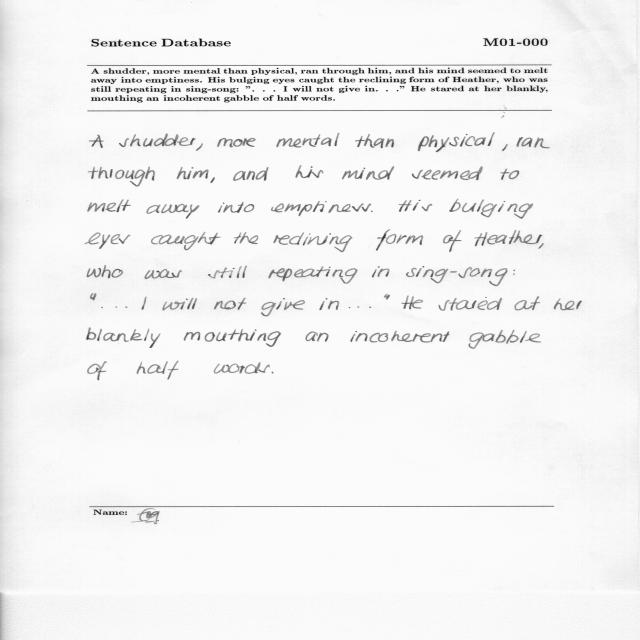 Sentence Database M01-000
A shudder, more mental than physical, ran through him, and his mind seemed to melt
away into emptiness. His bulging eyes caught the reclining form of Heather, who was
still repeating in sing-song: ". . . I will not give in. . ." He stared at her blankly,
mouthing an incoherent gabble of half words.
A shudder, more mental than physical, ran
through him, and his mind seemed to
melt away into emptiness. His bulging
eyes caught the reclining form of Heather,
who was still repeating in sing-song:
"... I will not give in..." He stared at her
blankly mouthing an incoherent gabble
of half words.
Name: